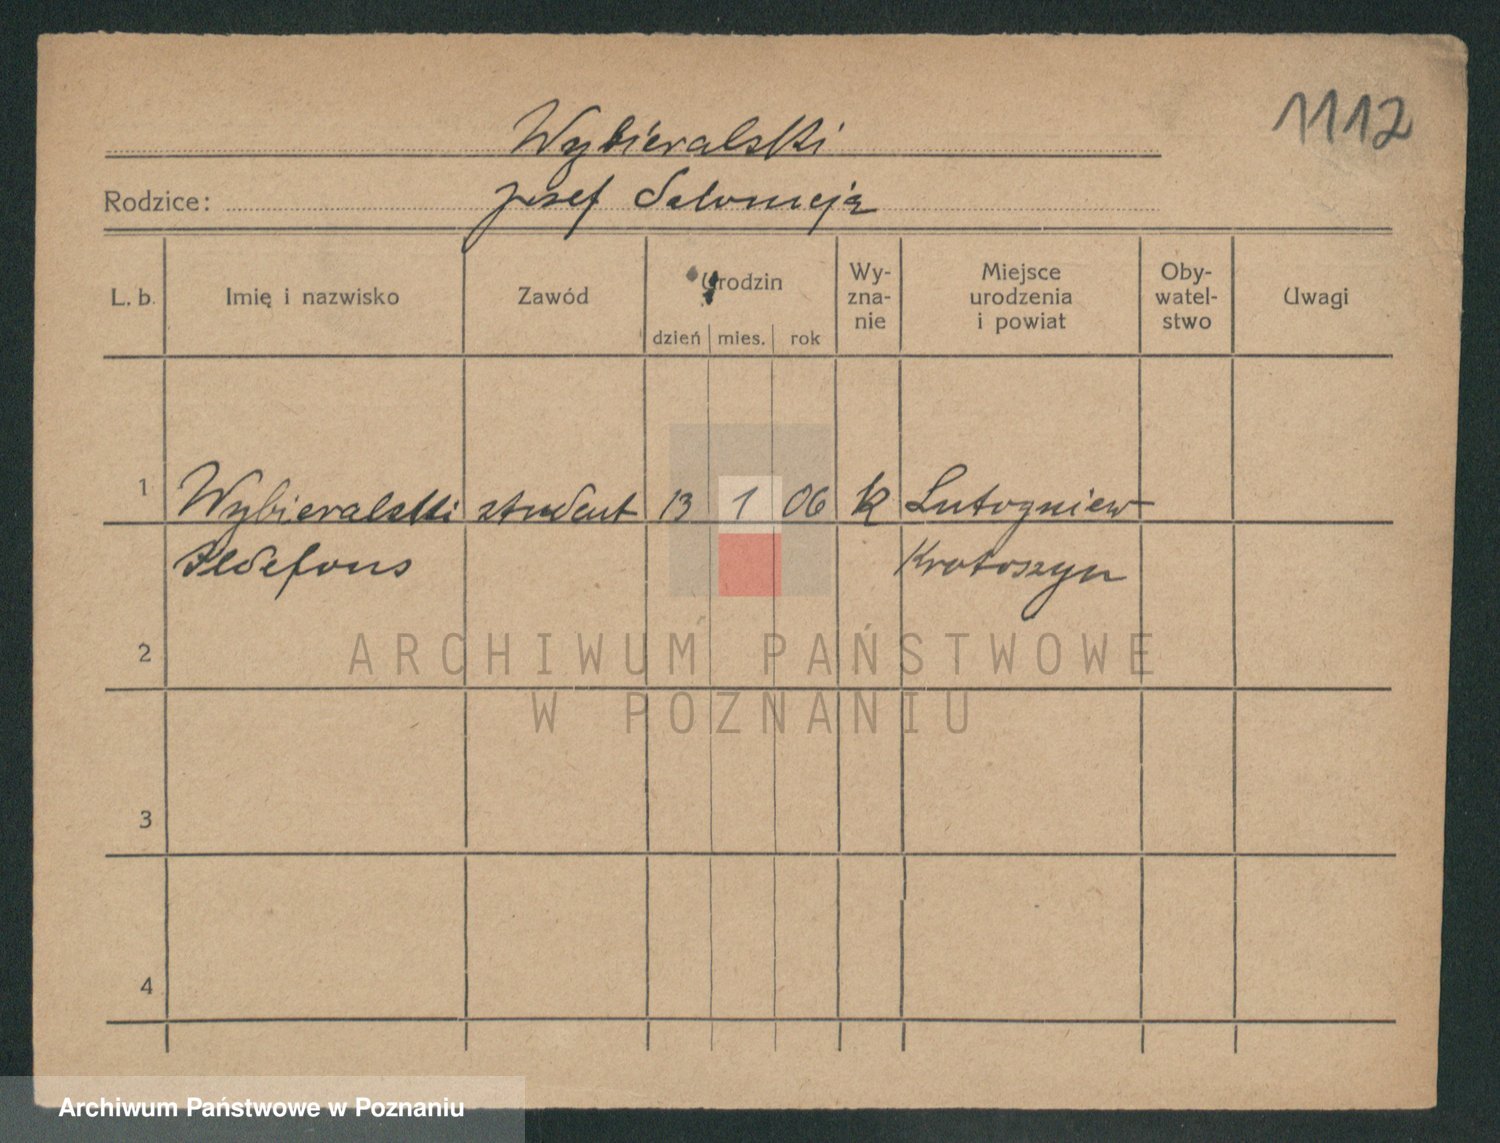 1112
Wybieralski
Rodzice: Josef Salomeja
L. b. Imię i nazwisko Zawód Urodzin Wy- Miejsce Oby- Uwagi
zna- urodzenia watel-
nie i powiat stwo
dzień mies. rok
1 Wybieralski student 13 1 06 k Lutogniew
Ildefons Krotoszyn
2
ARCHIWUM PAŃSTWOWE
W POZNANIU
3
4
Archiwum Państwowe w Poznaniu